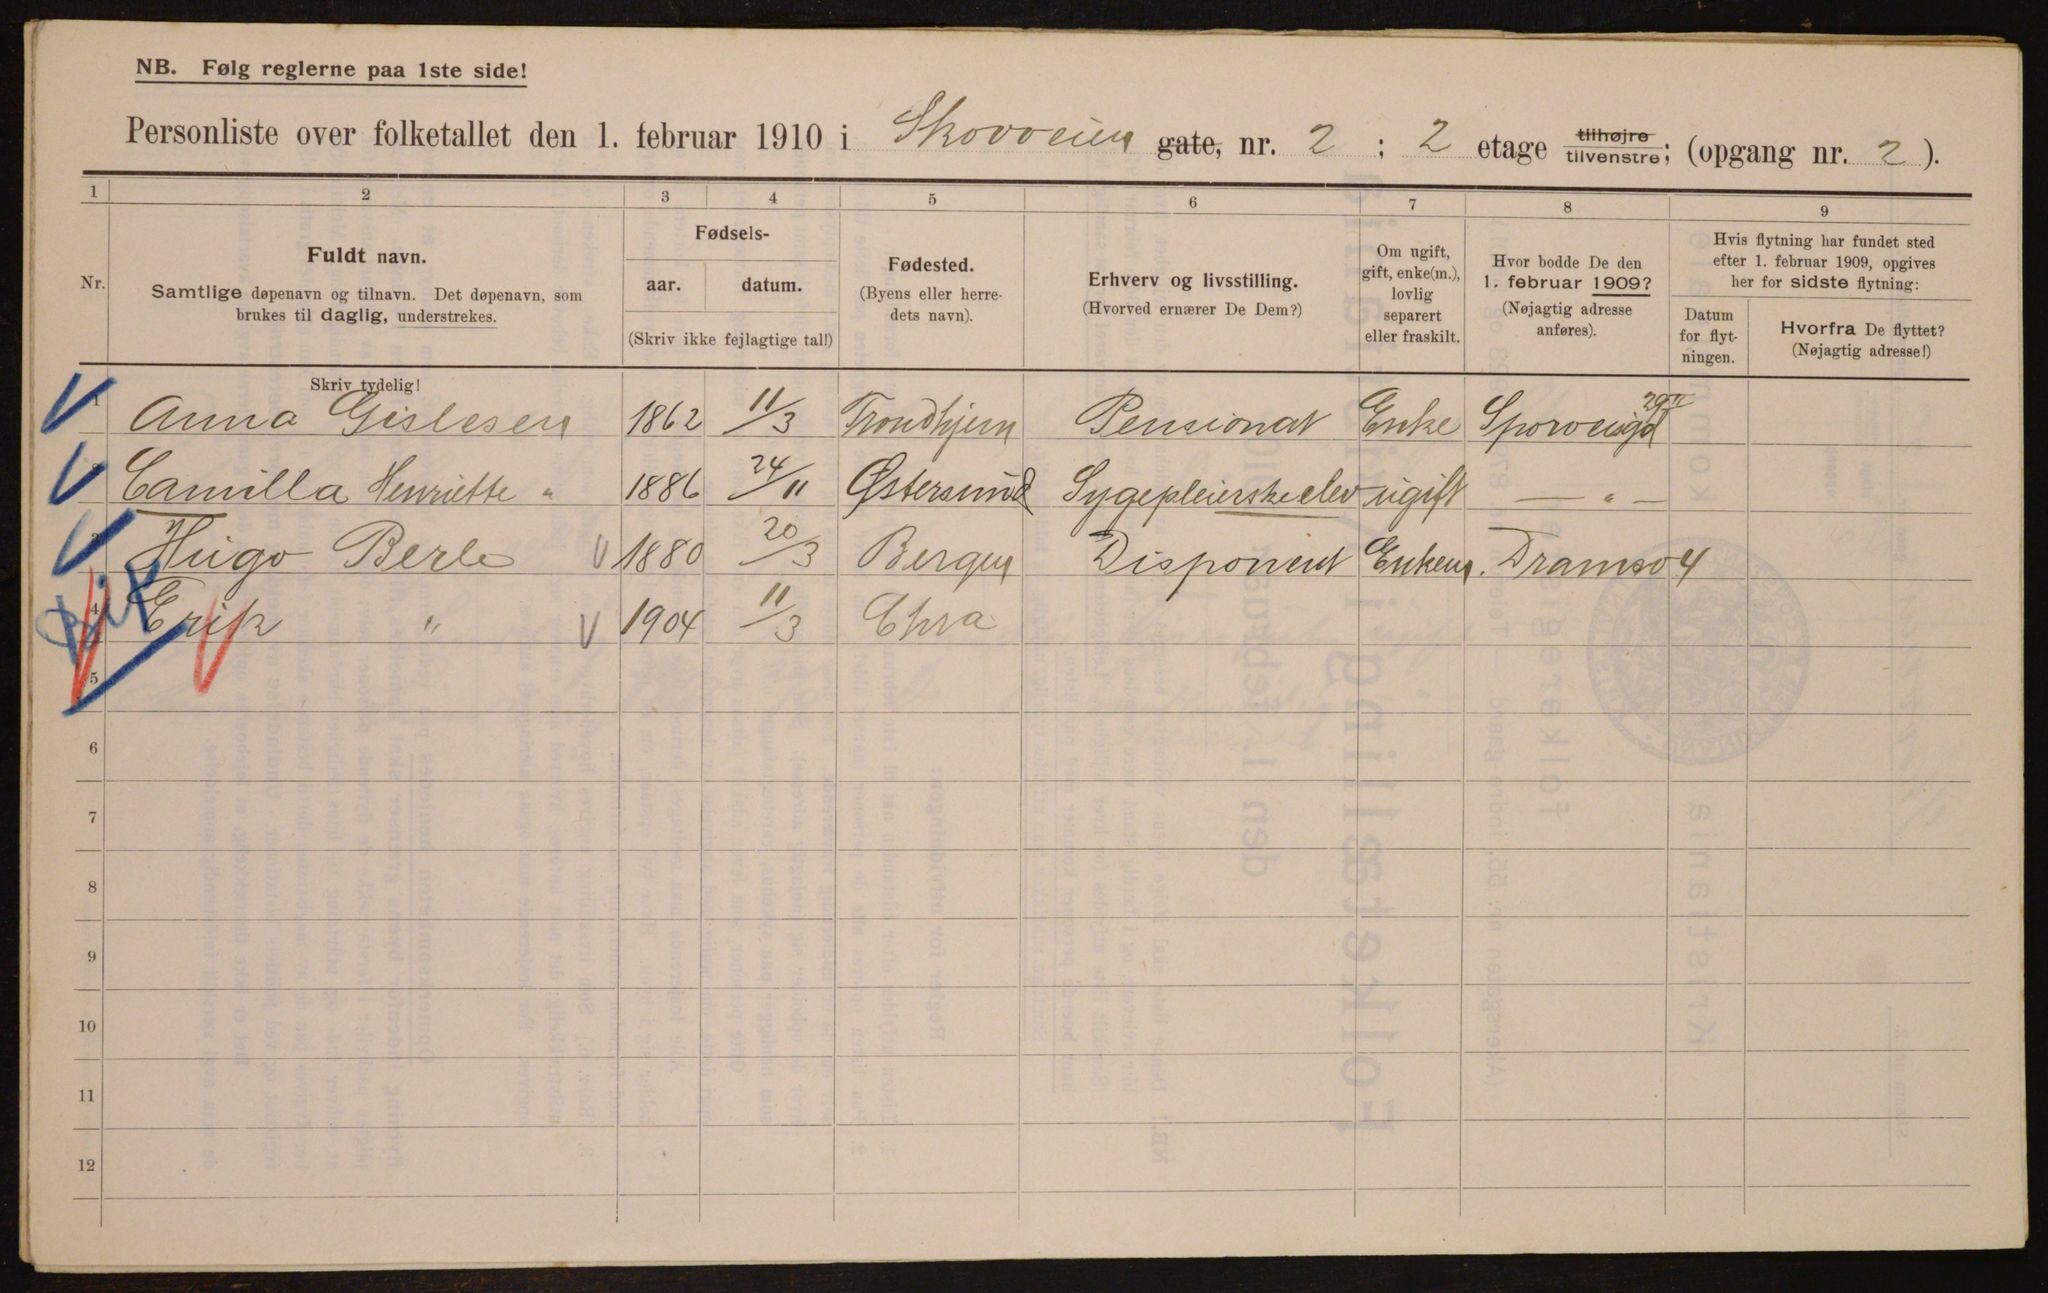 NB. Følg reglerne paa 1ste side!
Personliste over folketallet den 1. februar 1910 i Skovveien gate, nr. 2 ; 2 etage tilhøjre/tilvenstre; (opgang nr. 2 ).
1 2 3 4 5 6 7 8 9
Nr.
Fuldt navn.
Samtlige døpenavn og tilnavn. Det døpenavn, som
brukes til daglig, understrekes.
Fødsels-
aar. datum.
(Skriv ikke fejlagtige tal!)
Fødested.
(Byens eller herre-
dets navn).
Erhverv og livsstilling.
(Hvorved ernærer De Dem?)
Om ugift,
gift, enke(m.),
lovlig
separert
eller fraskilt.
Hvor bodde De den
1. februar 1909?
(Nøjagtig adresse
anføres).
Hvis flytning har fundet sted
efter 1. februar 1909, opgives
her for sidste flytning:
Datum
for flyt-
ningen.
Hvorfra De flyttet?
(Nøjagtig adresse!)
Skriv tydelig!
1 Anna Gislesen 1862 11/3 Trondhjem Pensionat Enke Sporveisgd
2 Camilla Henriette " 1886 24/11 Østersund Sygepleierskeelev ugift — " —
3 Hugo Berle 1880 20/3 Bergen Disponent Enkem. Dramsv 4
4 Erik " 1904 11/3 Chra
5
6
7
8
9
10
11
12